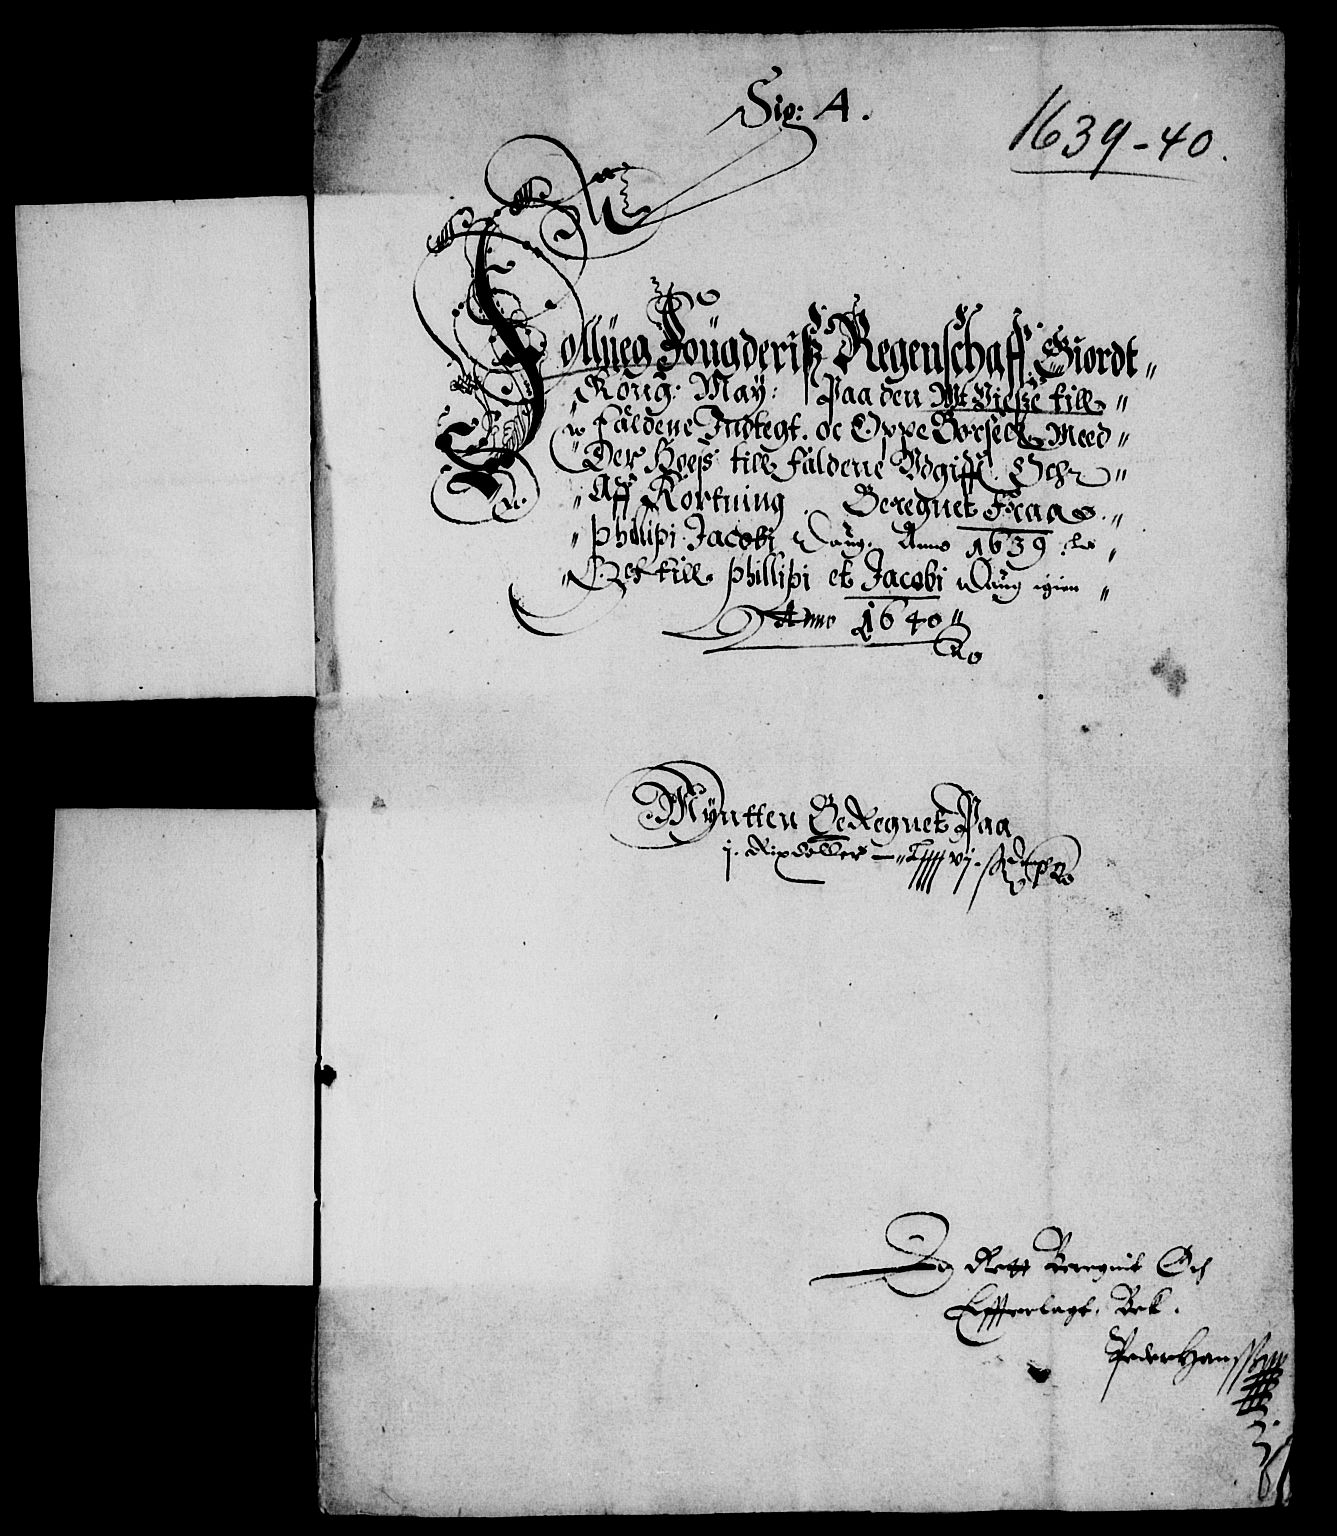 Sig: A.
1639-40.
Follüeg Fougderiß Regenschaff, Giordt
Kong: May: Paa den Wt Visße till
fäldene Indtegt. oc Oppe Borsell Meed
Der Hoeß till fäldene Vdgifft Sche
Aff Kortning. Beregnet Fraa
Phillipi Jacobi Daug. Anno 1639
Och till Phillipi et Jacobi Daug igien
Anno 1640
Myntten BeRegnet Paa
j. Rixdaller
Rett Beregnit Och
Effterlagt. Bek.
Peder Hanssen